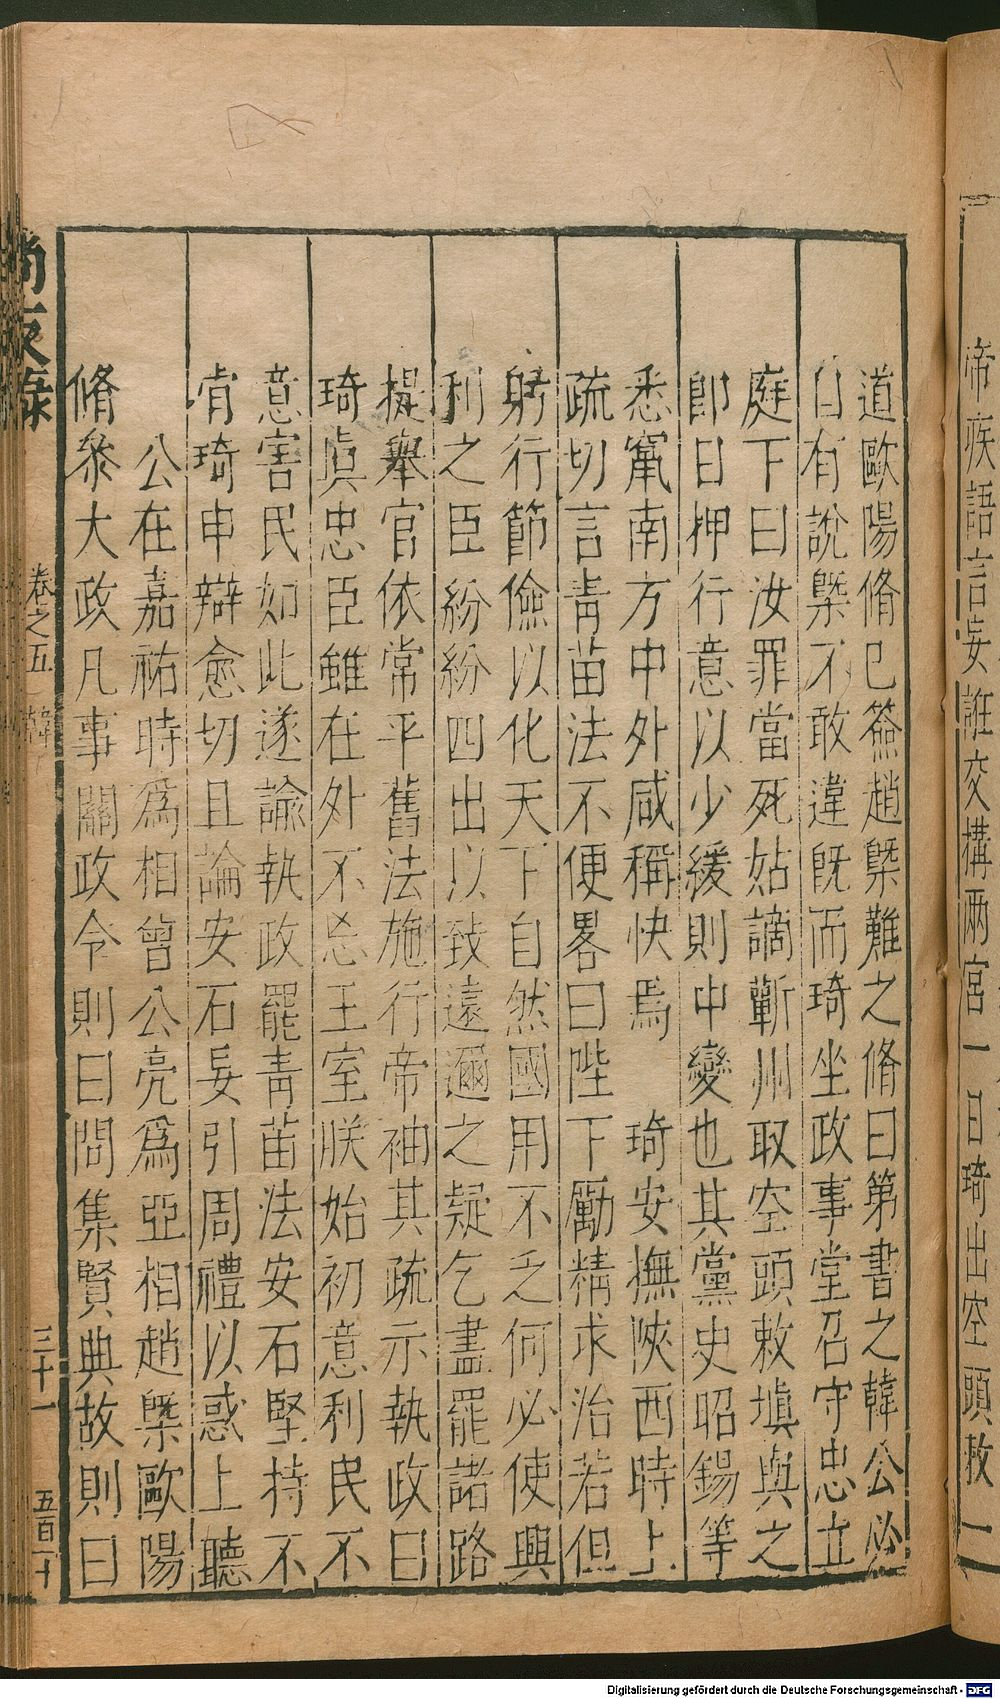 帝疾語言妄誑交搆兩宮一日琦出空頭敕一
道歐陽脩已簽趙槩難之脩曰第書之韓公必
自有說槩不敢違旣而琦坐政事堂召守忠立
庭下曰汝罪當死姑謫蘄州取空頭敕塡與之
卽日押行意以少緩則中變也其黨史昭錫等
悉竄南方中外咸稱快焉　琦安撫陝西時上
疏切言靑苗法不便畧曰陛下勵精求治若但
躬行節儉以化天下自然國用不乏何必使興
利之臣紛紛四出以致遠邇之疑乞盡罷諸路
提舉官依常平舊法施行帝袖其疏示執政曰
琦眞忠臣雖在外不忘王室朕始初意利民不
意害民如此遂諭執政罷靑苗法安石堅持不
肯琦申辯愈切且論安石妄引周禮以惑上聽
公在嘉祐時爲相曾公亮爲亞相趙槩歐陽
脩叅大政凡事關政令則曰問集賢典故則曰
尚友錄
卷之五
韓
三十一
五百二十
Digitalisierung gefördert durch die Deutsche Forschungsgemeinschaft - DFG